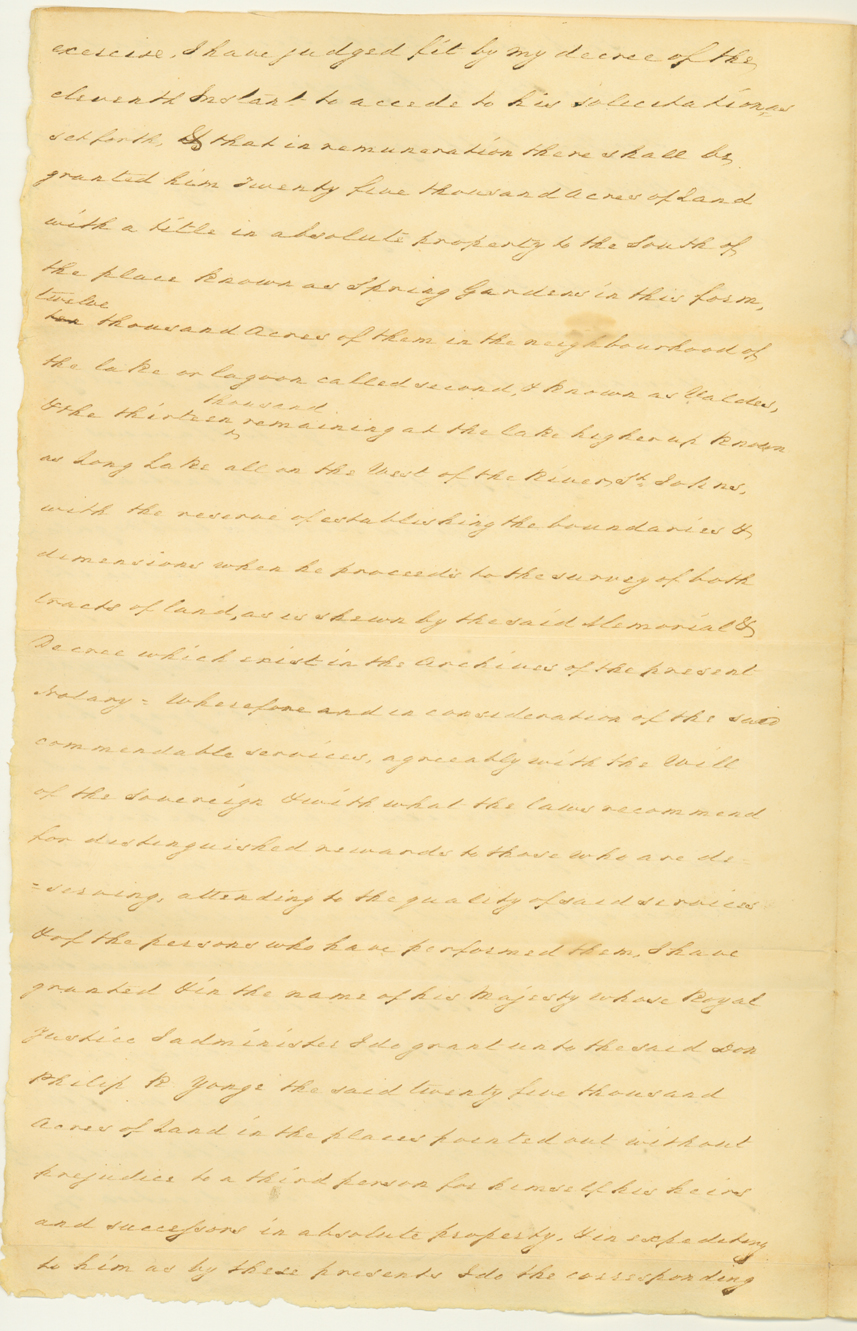 exercise, I have judged fit by my decree of the
eleventh Instant to accede to his solicitations
setforth, & that in remuneration there shall be
granted him Twenty five thousand Acres of Land
with a title in absolute property to the South of
the place known as Spring Gardens in this form,
twelve
ten thousand Acres of them in the neighbourhood of
the lake or lagoon called second, & known as Valdes,
thousand
& the thirteen remaining at the lake higher up known
as Long Lake all on the West of the River St Johns,
with the reserve of establishing the boundaries &
dimensions when he proceeds to the survey of both
tracts of land, as is shewn by the said Memorial &
Decree which exist in the Archives of the present
Notary = Wherefore and in consideration of the said
commendable services, agreeably with the Will
of the Sovereign & with what the laws recommend
for distinguished rewards to those who are de=
=serving, attending to the quality of said services
& of the persons who have performed them, I have
granted & in the name of his Majesty whose Royal
Justice I administer I do grant unto the said Don
Philip R Yonge the said twenty five thousand
Acres of Land in the places pointed out without
prejudice to a third person for himself his heirs
and successors in absolute property, & in expediting
to him as by these presents I do the corresponding